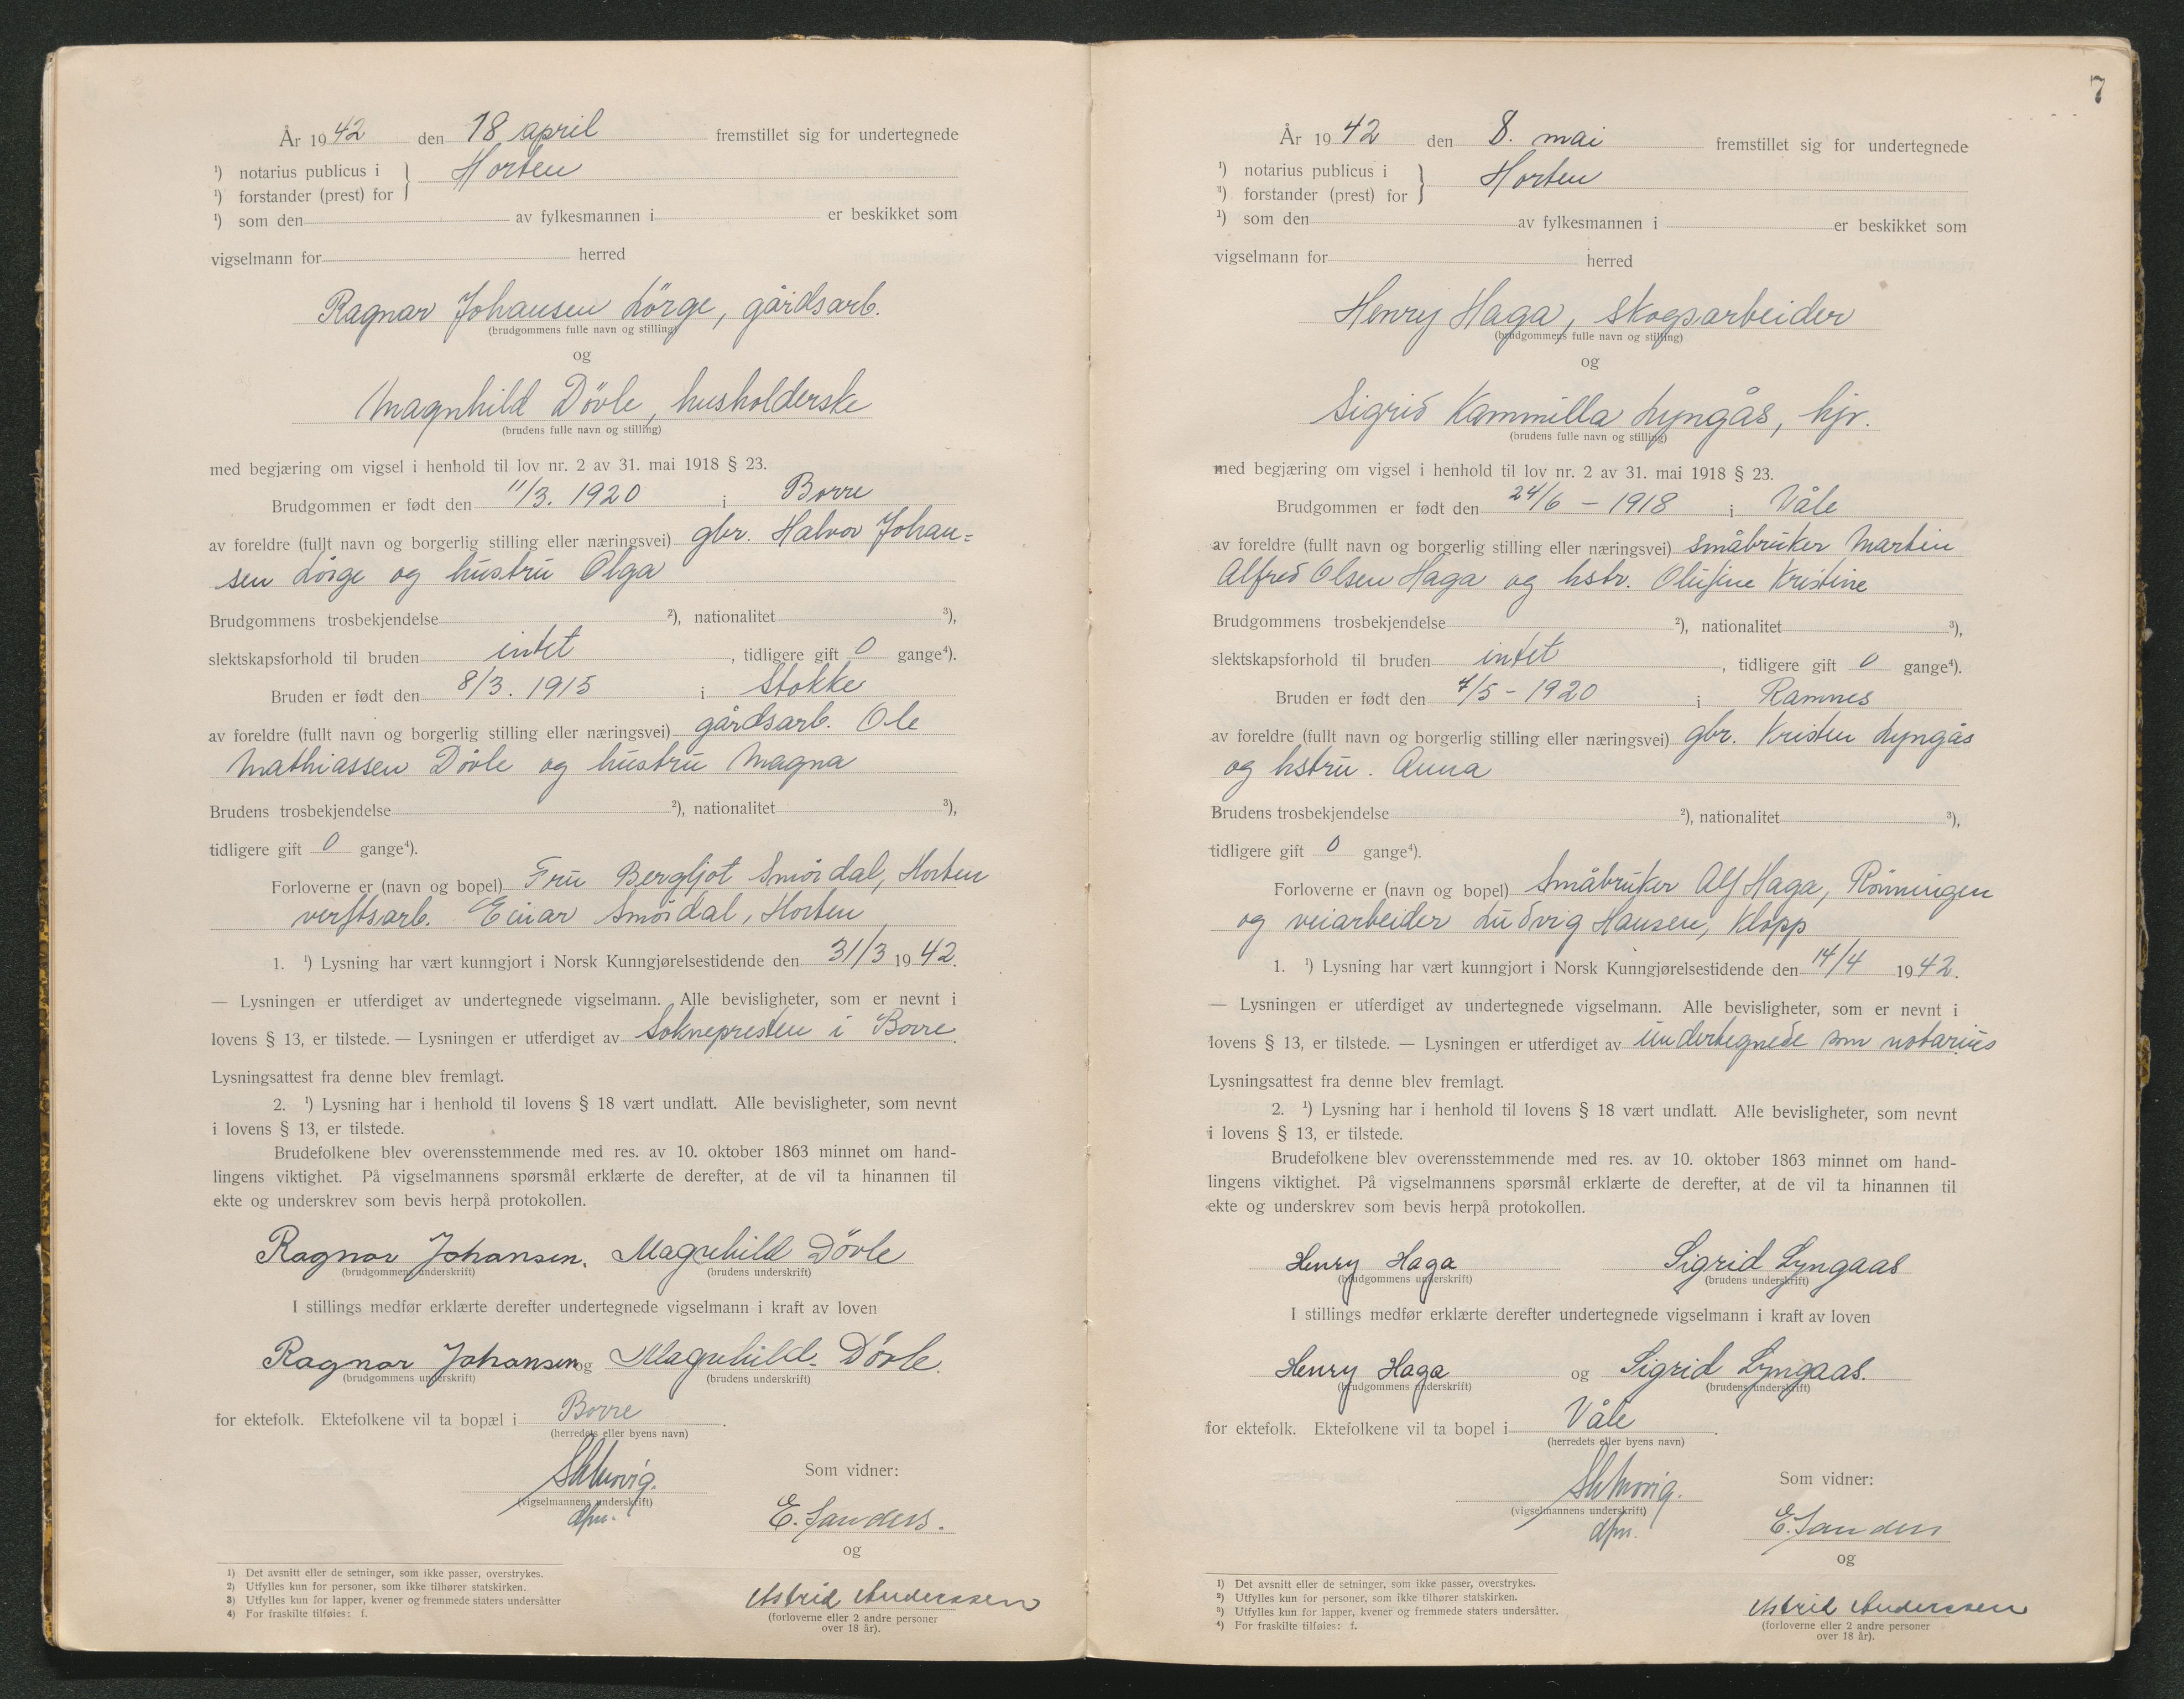 År 1942 den 18 april fremstillet sig for undertegnede
¹) notarius publicus i } Horten
¹) forstander (prest) for
¹) som den av fylkesmannen i er beskikket som
vigselmann for herred
Ragnar Johansen Lörge, gårdsarb.
(brudgommens fulle navn og stilling)
og
Magnhild Dövle, husholderske
(brudens fulle navn og stilling)
med begjæring om vigsel i henhold til lov nr. 2 av 31. mai 1918 § 23.
Brudgommen er født den 11/3. 1920 i Borre
av foreldre (fullt navn og borgerlig stilling eller næringsvei) gbr. Halvor Johan=
sen Lörge og hustru Olga
Brudgommens trosbekjendelse ²), nationalitet ³),
slektskapsforhold til bruden intet, tidligere gift 0 gange⁴).
Bruden er født den 8/3. 1915 i Stokke
av foreldre (fullt navn og borgerlig stilling eller næringsvei) gårdsarb. Ole
Mathiassen Dövle og hustru Magna
Brudens trosbekjendelse ²), nationalitet ³),
tidligere gift 0 gange⁴).
Forloverne er (navn og bopel) Fru Bergljot Smördal, Horten
verftsarb. Einar Smördal, Horten
1. ¹) Lysning har vært kunngjort i Norsk Kunngjørelsestidende den 31/3 1942.
— Lysningen er utferdiget av undertegnede vigselmann. Alle bevisligheter, som er nevnt i
lovens § 13, er tilstede. — Lysningen er utferdiget av Soknepresten i Borre.
Lysningsattest fra denne blev fremlagt.
2. ¹) Lysning har i henhold til lovens § 18 vært undlatt. Alle bevisligheter, som nevnt
i lovens § 13, er tilstede.
Brudefolkene blev overensstemmende med res. av 10. oktober 1863 minnet om hand-
lingens viktighet. På vigselmannens spørsmål erklærte de derefter, at de vil ta hinannen til
ekte og underskrev som bevis herpå protokollen.
Ragnar Johansen. Magnhild Dövle
(brudgommens underskrift) (brudens underskrift)
I stillings medfør erklærte derefter undertegnede vigselmann i kraft av loven
Ragnar Johansen og Magnhild Dövle.
(brudgommens underskrift) (brudens underskrift)
for ektefolk. Ektefolkene vil ta bopæl i Borre.
(herredets eller byens navn)
Som vidner:
(vigselmannens underskrift)
dfm.
E. Sanders.
og
Astrid Anderssen
(forloverne eller 2 andre personer
over 18 år).
1) Det avsnitt eller de setninger, som ikke passer, overstrykes.
2) Utfylles kun for personer, som ikke tilhører statskirken.
3) Utfylles kun for lapper, kvener og fremmede staters undersåtter
4) For fraskilte tilføies: f.
7
År 1942 den 8. mai fremstillet sig for undertegnede
¹) notarius publicus i } Horten
¹) forstander (prest) for
¹) som den av fylkesmannen i er beskikket som
vigselmann for herred
Henry Haga, skogsarbeider
(brudgommens fulle navn og stilling)
og
Sigrid Kammilla Lyngås, hjv.
(brudens fulle navn og stilling)
med begjæring om vigsel i henhold til lov nr. 2 av 31. mai 1918 § 23.
Brudgommen er født den 24/6 - 1918 i Våle
av foreldre (fullt navn og borgerlig stilling eller næringsvei) småbruker Martin
Alfred Olsen Haga og hstr. Olufine Kristine
Brudgommens trosbekjendelse ²), nationalitet ³),
slektskapsforhold til bruden intet, tidligere gift 0 gange⁴).
Bruden er født den 7/5 - 1920 i Ramnes
av foreldre (fullt navn og borgerlig stilling eller næringsvei) gbr. Kristen Lyngås
og hstru. Anna
Brudens trosbekjendelse ²), nationalitet ³),
tidligere gift 0 gange⁴).
Forloverne er (navn og bopel) Småbruker Alf Haga, Rönningen
og veiarbeider Ludvig Hansen, Klopp
1. ¹) Lysning har vært kunngjort i Norsk Kunngjørelsestidende den 14/4 1942.
— Lysningen er utferdiget av undertegnede vigselmann. Alle bevisligheter, som er nevnt i
lovens § 13, er tilstede. — Lysningen er utferdiget av undertegnede som notarius
Lysningsattest fra denne blev fremlagt.
2. ¹) Lysning har i henhold til lovens § 18 vært undlatt. Alle bevisligheter, som nevnt
i lovens § 13, er tilstede.
Brudefolkene blev overensstemmende med res. av 10. oktober 1863 minnet om hand-
lingens viktighet. På vigselmannens spørsmål erklærte de derefter, at de vil ta hinannen til
ekte og underskrev som bevis herpå protokollen.
Henry Haga Sigrid Lyngaas
(brudgommens underskrift) (brudens underskrift)
I stillings medfør erklærte derefter undertegnede vigselmann i kraft av loven
Henry Haga og Sigrid Lyngaas.
(brudgommens underskrift) (brudens underskrift)
for ektefolk. Ektefolkene vil ta bopel i Våle.
(herredets eller byens navn)
Som vidner:
(vigselmannens underskrift)
dfm.
E. Sanders
og
Astrid Anderssen
(forloverne eller 2 andre personer
over 18 år).
1) Det avsnitt eller de setninger, som ikke passer, overstrykes.
2) Utfylles kun for personer, som ikke tilhører statskirken.
3) Utfylles kun for lapper, kvener og fremmede staters undersåtter.
4) For fraskilte tilføies: f.